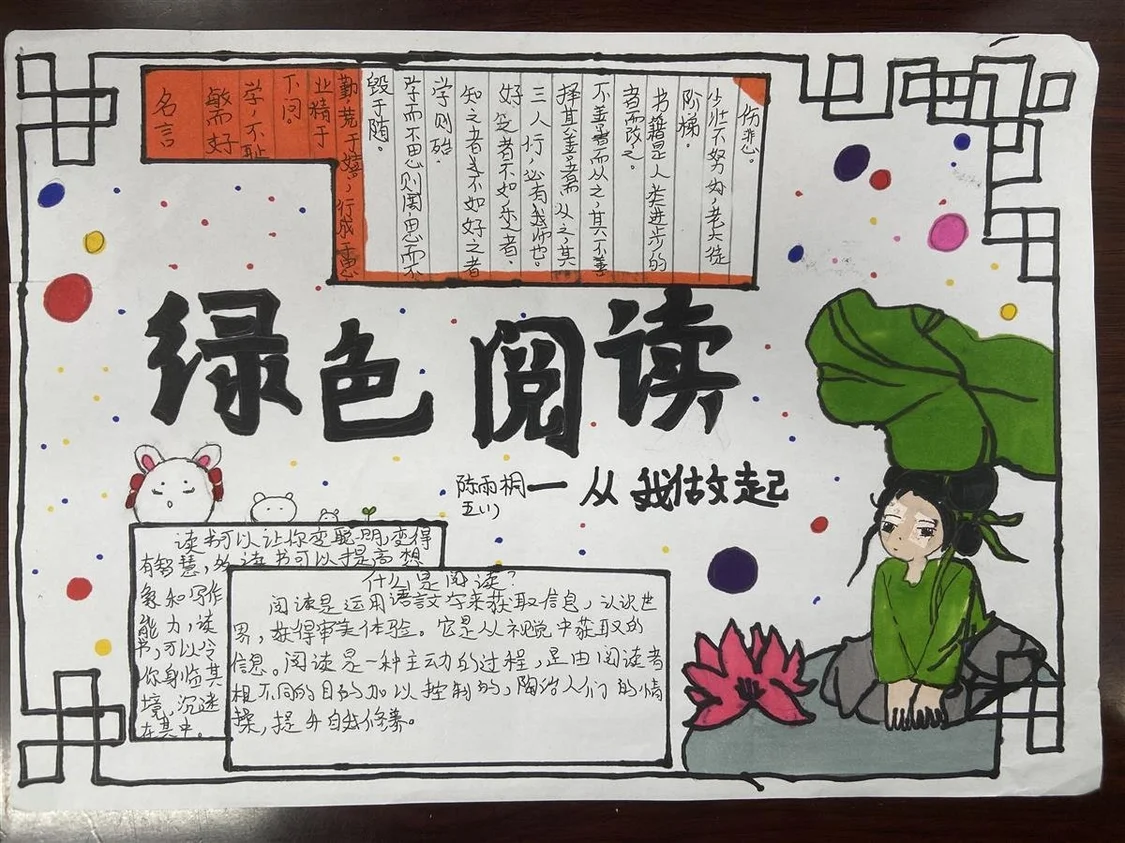 名言
敏而好
学,不耻
下问。
业精于
勤,荒于嬉;行成于思
毁于随。
学而不思则罔,思而不
学则殆。
知之者不如好之者
好之者不如乐之者。
三人行,必有我师也。
择其善者而从之,其
不善者而从之,其不善
者而改之。
书籍是人类进步的
阶梯。
少壮不努力,老大徒
伤悲。
绿色阅读
陈雨桐
五(1)
一从我做起
读书可以让你变聪明,变得
有智慧,读书可以提高想
象和写作
能力,读
书,可以令
你身临其
境,沉迷
在其中。
什么是阅读?
阅读是运用语言文字来获取信息,认识世
界,获得审美体验。它是从视觉中获取的
信息。阅读是一种主动的过程,是由阅读者
根不同的目的加以控制的,陶冶人们的情
操,提升自我修养。